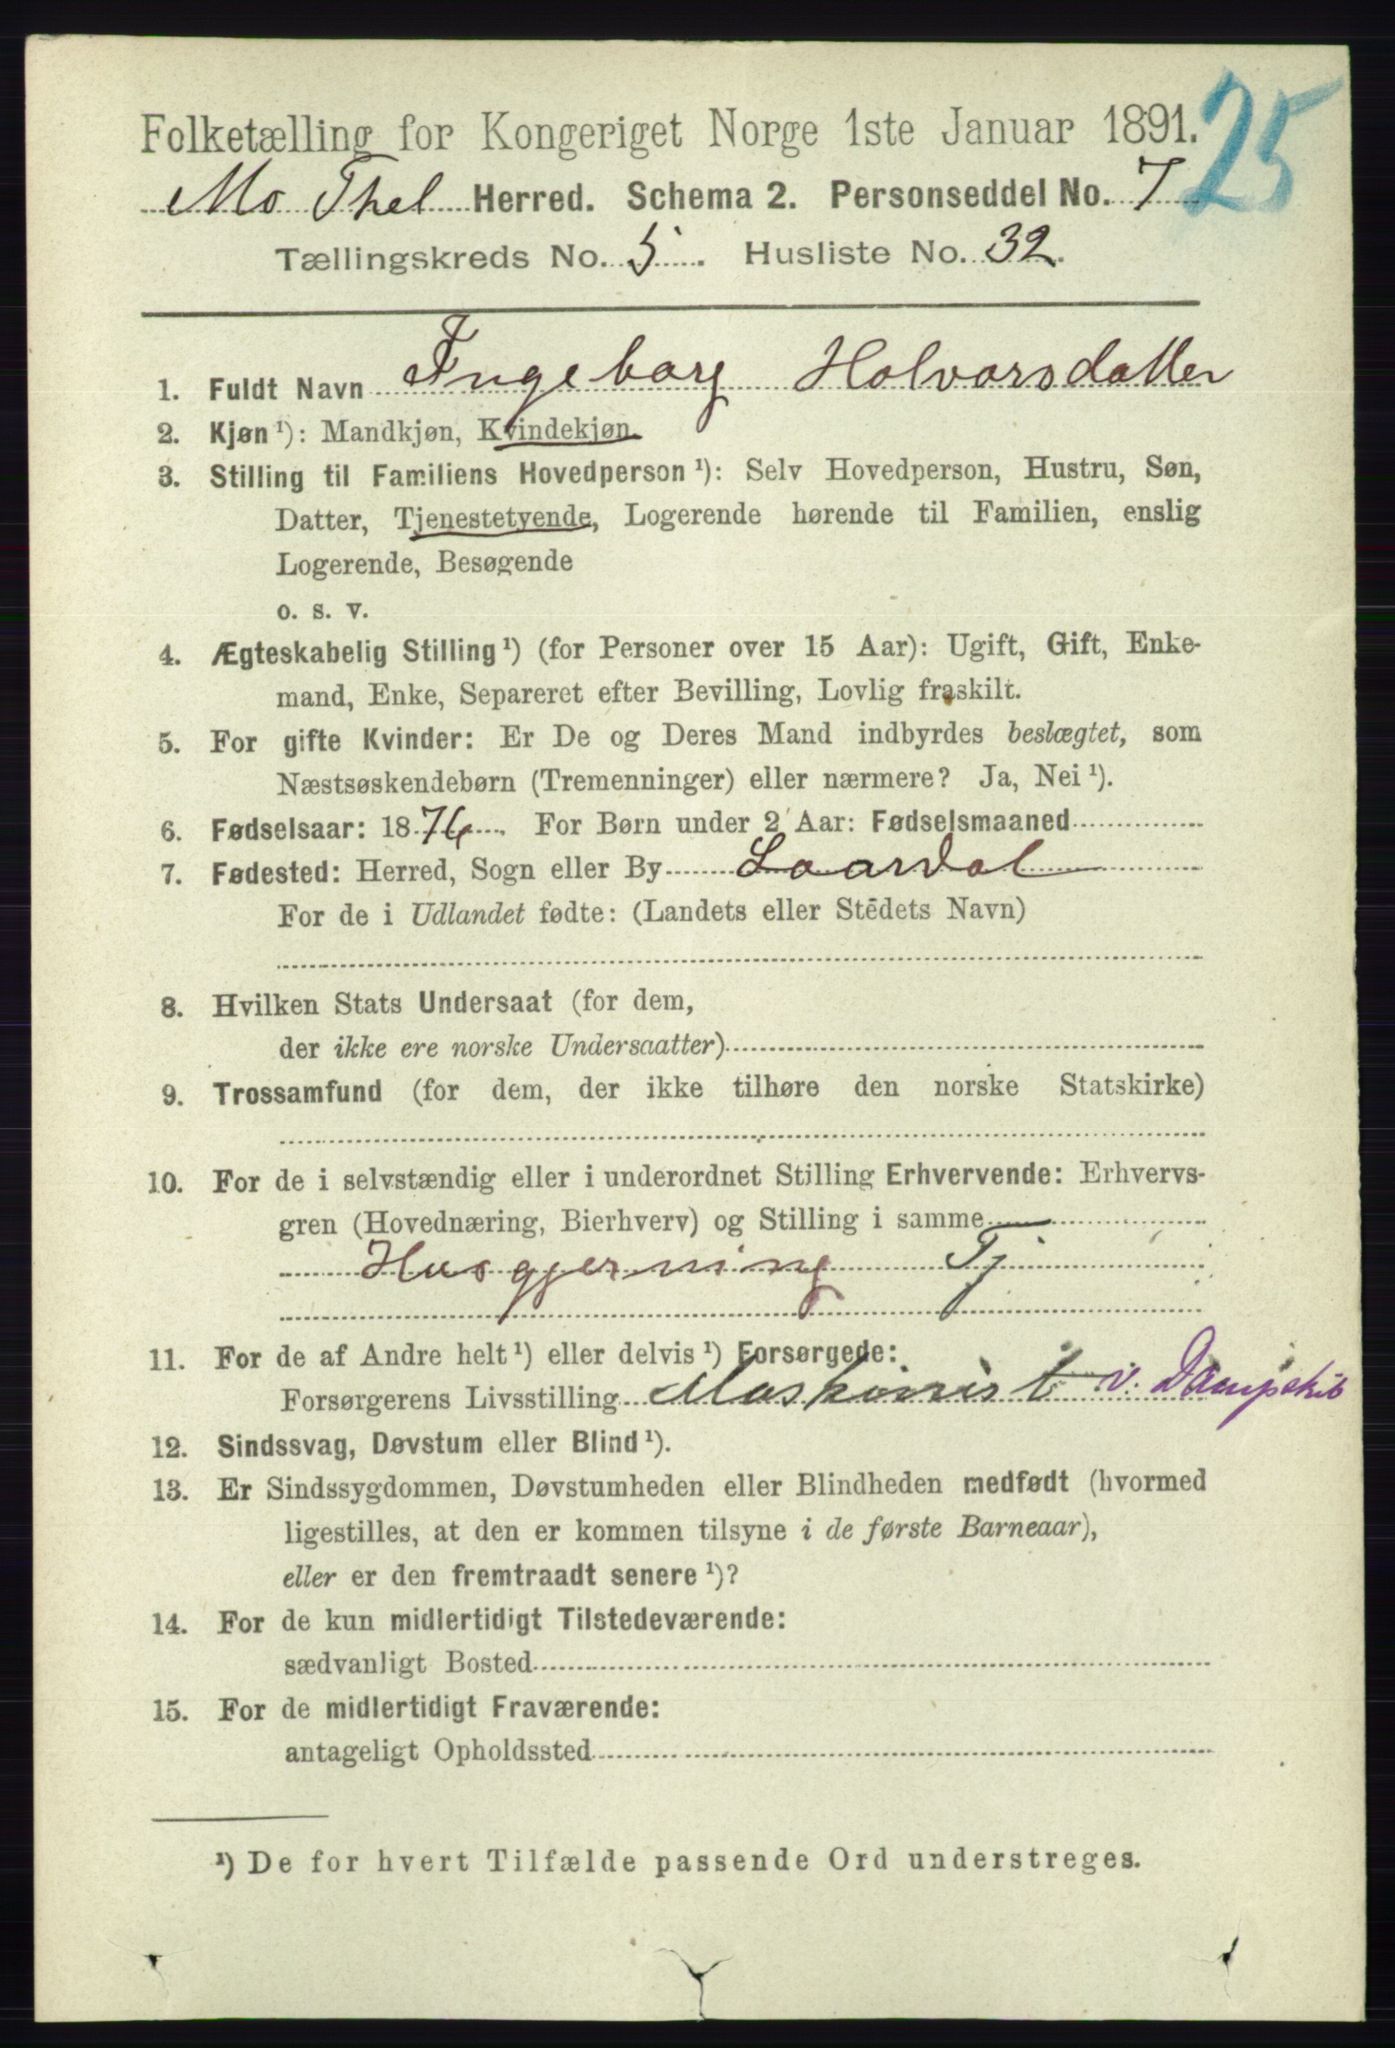 25
Folketælling for Kongeriget Norge 1ste Januar 1891.
Mo Thel Herred. Schema 2. Personseddel No. 7
Tællingskreds No. 5. Husliste No. 32.
1. Fuldt Navn Ingeborg Holvorsdatter
2. Kjøn ¹): Mandkjøn, Kvindekjøn.
3. Stilling til Familiens Hovedperson ¹): Selv Hovedperson, Hustru, Søn,
Datter, Tjenestetyende, Logerende hørende til Familien, enslig
Logerende, Besøgende
o. s. v.
4. Ægteskabelig Stilling ¹) (for Personer over 15 Aar): Ugift, Gift, Enke-
mand, Enke, Separeret efter Bevilling, Lovlig fraskilt.
5. For gifte Kvinder: Er De og Deres Mand indbyrdes beslægtet, som
Næstsøskendebørn (Tremenninger) eller nærmere? Ja, Nei ¹).
6. Fødselsaar: 1876. For Børn under 2 Aar: Fødselsmaaned
7. Fødested: Herred, Sogn eller By Laardal
For de i Udlandet fødte: (Landets eller Stedets Navn)
8. Hvilken Stats Undersaat (for dem,
der ikke ere norske Undersaatter)
9. Trossamfund (for dem, der ikke tilhøre den norske Statskirke)
10. For de i selvstændig eller i underordnet Stilling Erhvervende: Erhvervs-
gren (Hovednæring, Bierhverv) og Stilling i samme
Husgjerning Tj
11. For de af Andre helt ¹) eller delvis ¹) Forsørgede:
Forsørgerens Livsstilling Maskinist v. Dampskib
12. Sindssvag, Døvstum eller Blind ¹).
13. Er Sindssygdommen, Døvstumheden eller Blindheden medfødt (hvormed
ligestilles, at den er kommen tilsyne i de første Barneaar),
eller er den fremtraadt senere ¹)?
14. For de kun midlertidigt Tilstedeværende:
sædvanligt Bosted
15. For de midlertidigt Fraværende:
antageligt Opholdssted
¹) De for hvert Tilfælde passende Ord understreges.